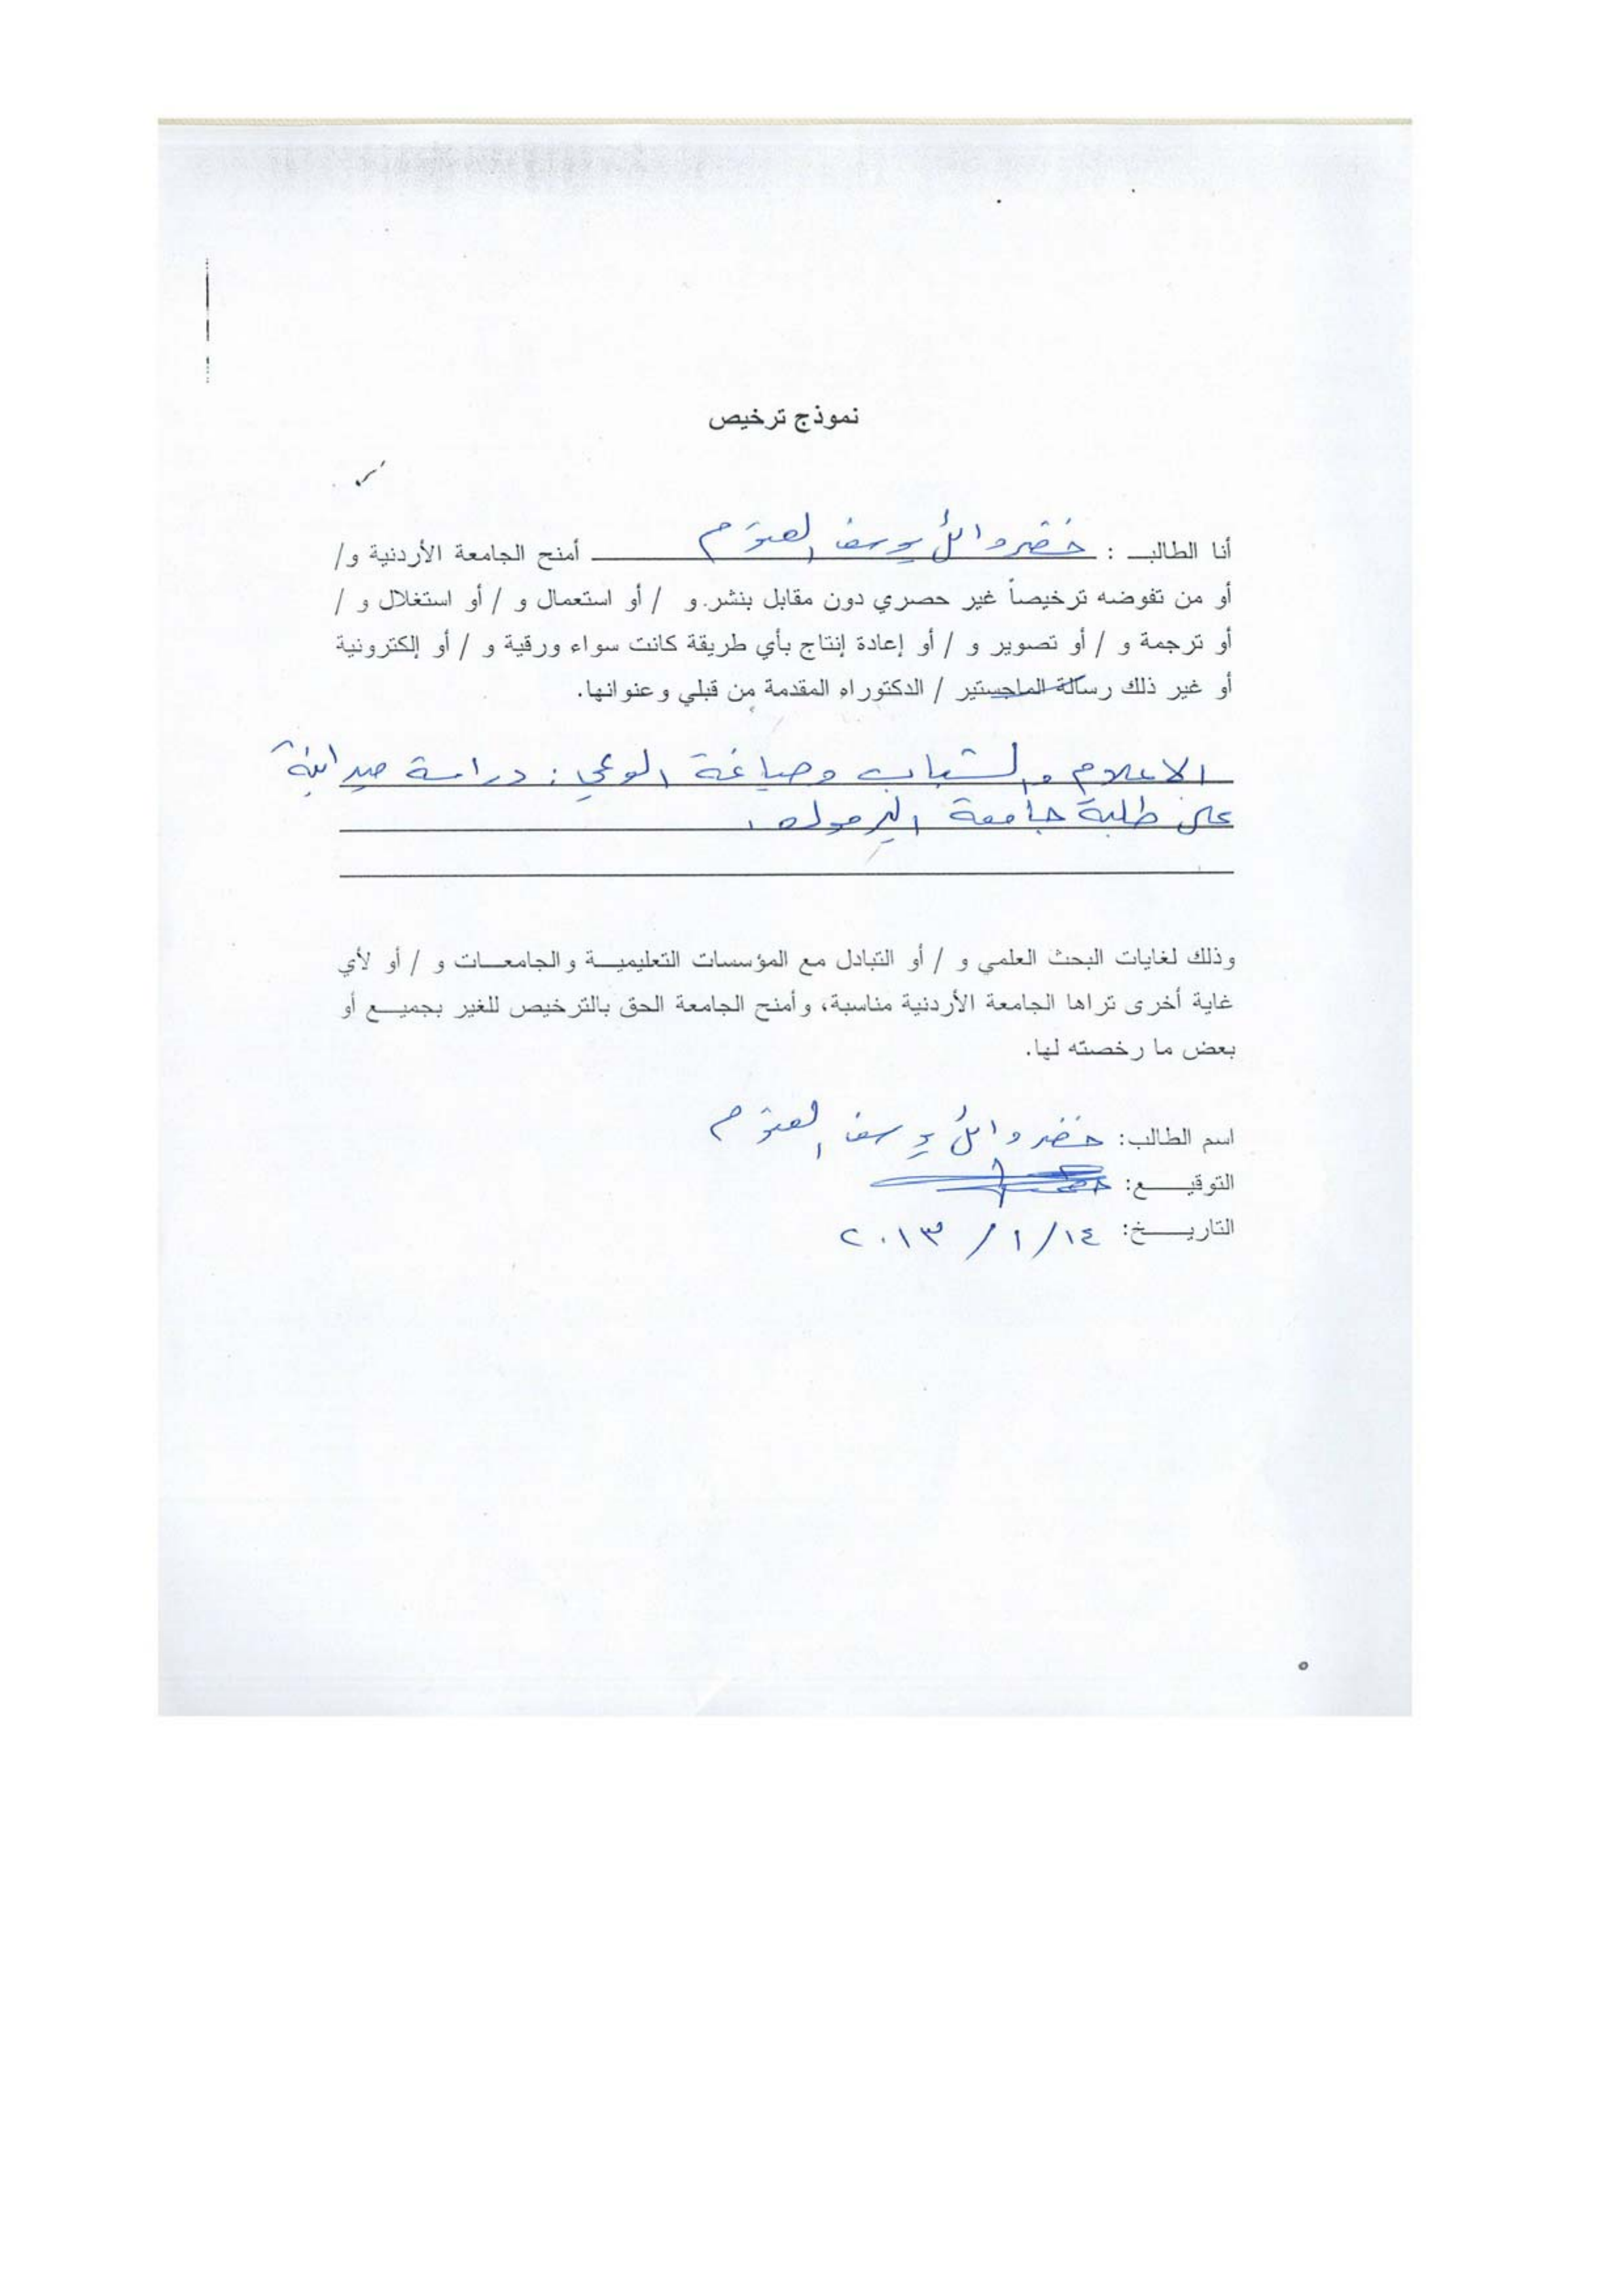 نموذج ترخيص
أنا الطالب : خضر وائل يوسف العتوم أمنح الجامعة الأردنية و/
أو من تفوضه ترخيصاً غير حصري دون مقابل بنشر و / أو استعمال و / أو استغلال و /
أو ترجمة و / أو تصوير و / أو إعادة إنتاج بأي طريقة كانت سواء ورقية و / أو إلكترونية
أو غير ذلك رسالة الماجستير / الدكتوراه المقدمة من قبلي وعنوانها.
الاعلام والشباب وصياغة الوعي : دراسة ميدانية
على طلبة جامعة اليرموك.
وذلك لغايات البحث العلمي و / أو التبادل مع المؤسسات التعليمية والجامعات و / أو لأي
غاية أخرى تراها الجامعة الأردنية مناسبة، وأمنح الجامعة الحق بالترخيص للغير بجميع أو
بعض ما رخصته لها.
اسم الطالب: خضر وائل يوسف العتوم
التوقيع:
التاريخ: ١٤/ ١ / ٢٠١٣